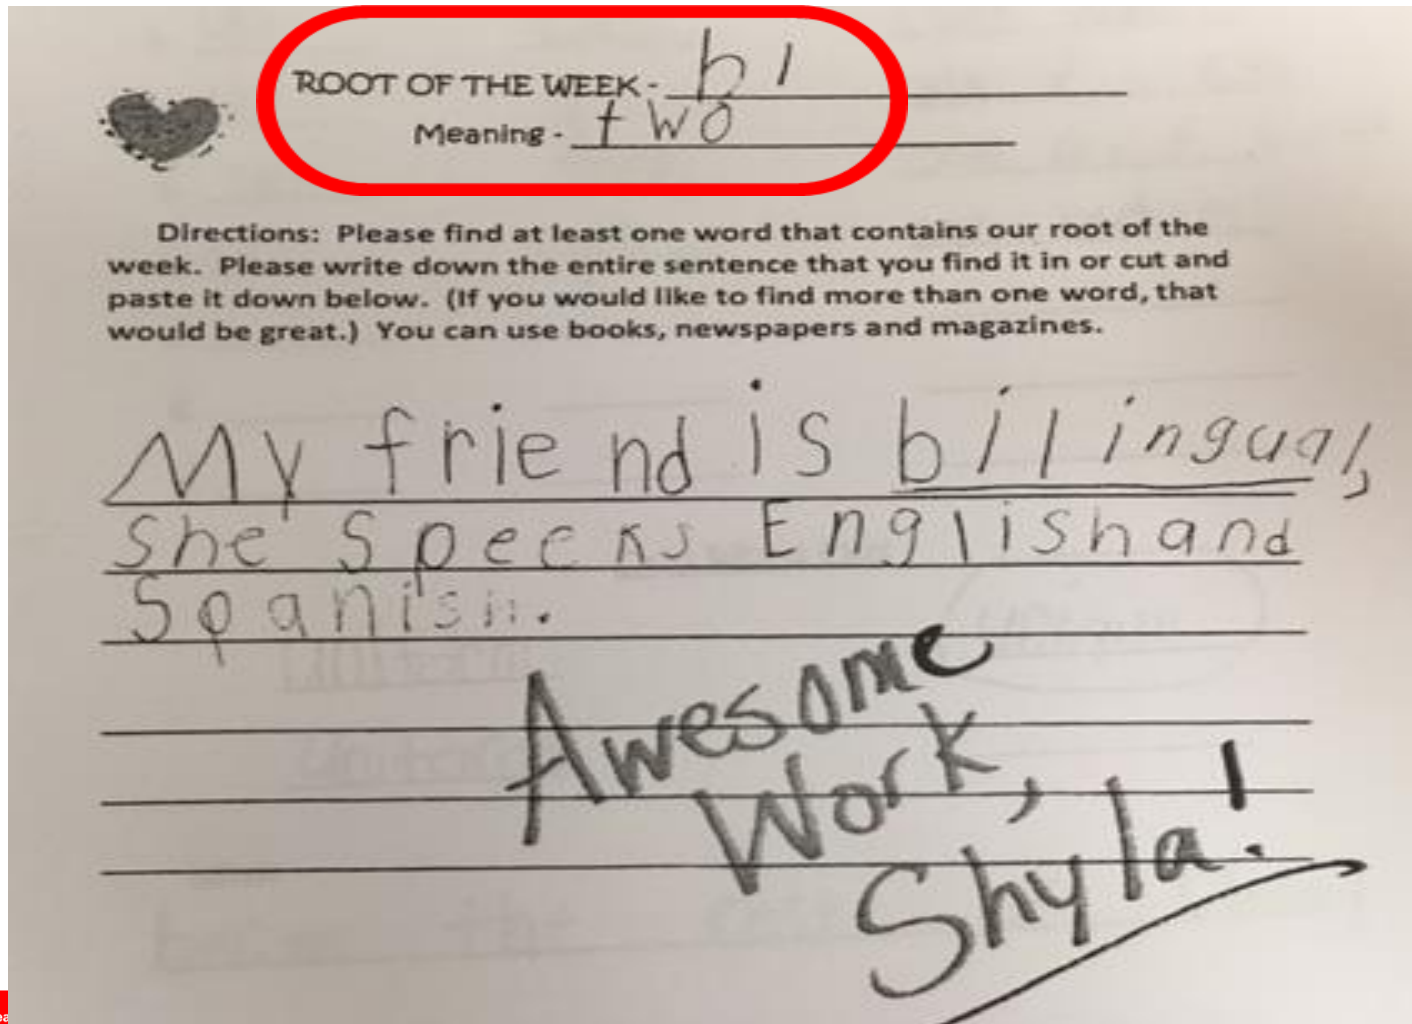 ROOT OF THE WEEK - bi
Meaning - two
Directions: Please find at least one word that contains our root of the
week. Please write down the entire sentence that you find it in or cut and
paste it down below. (If you would like to find more than one word, that
would be great.) You can use books, newspapers and magazines.
My friend is bilingual,
She Specks English and
Spanish.
Awesome
Work,
Shyla!